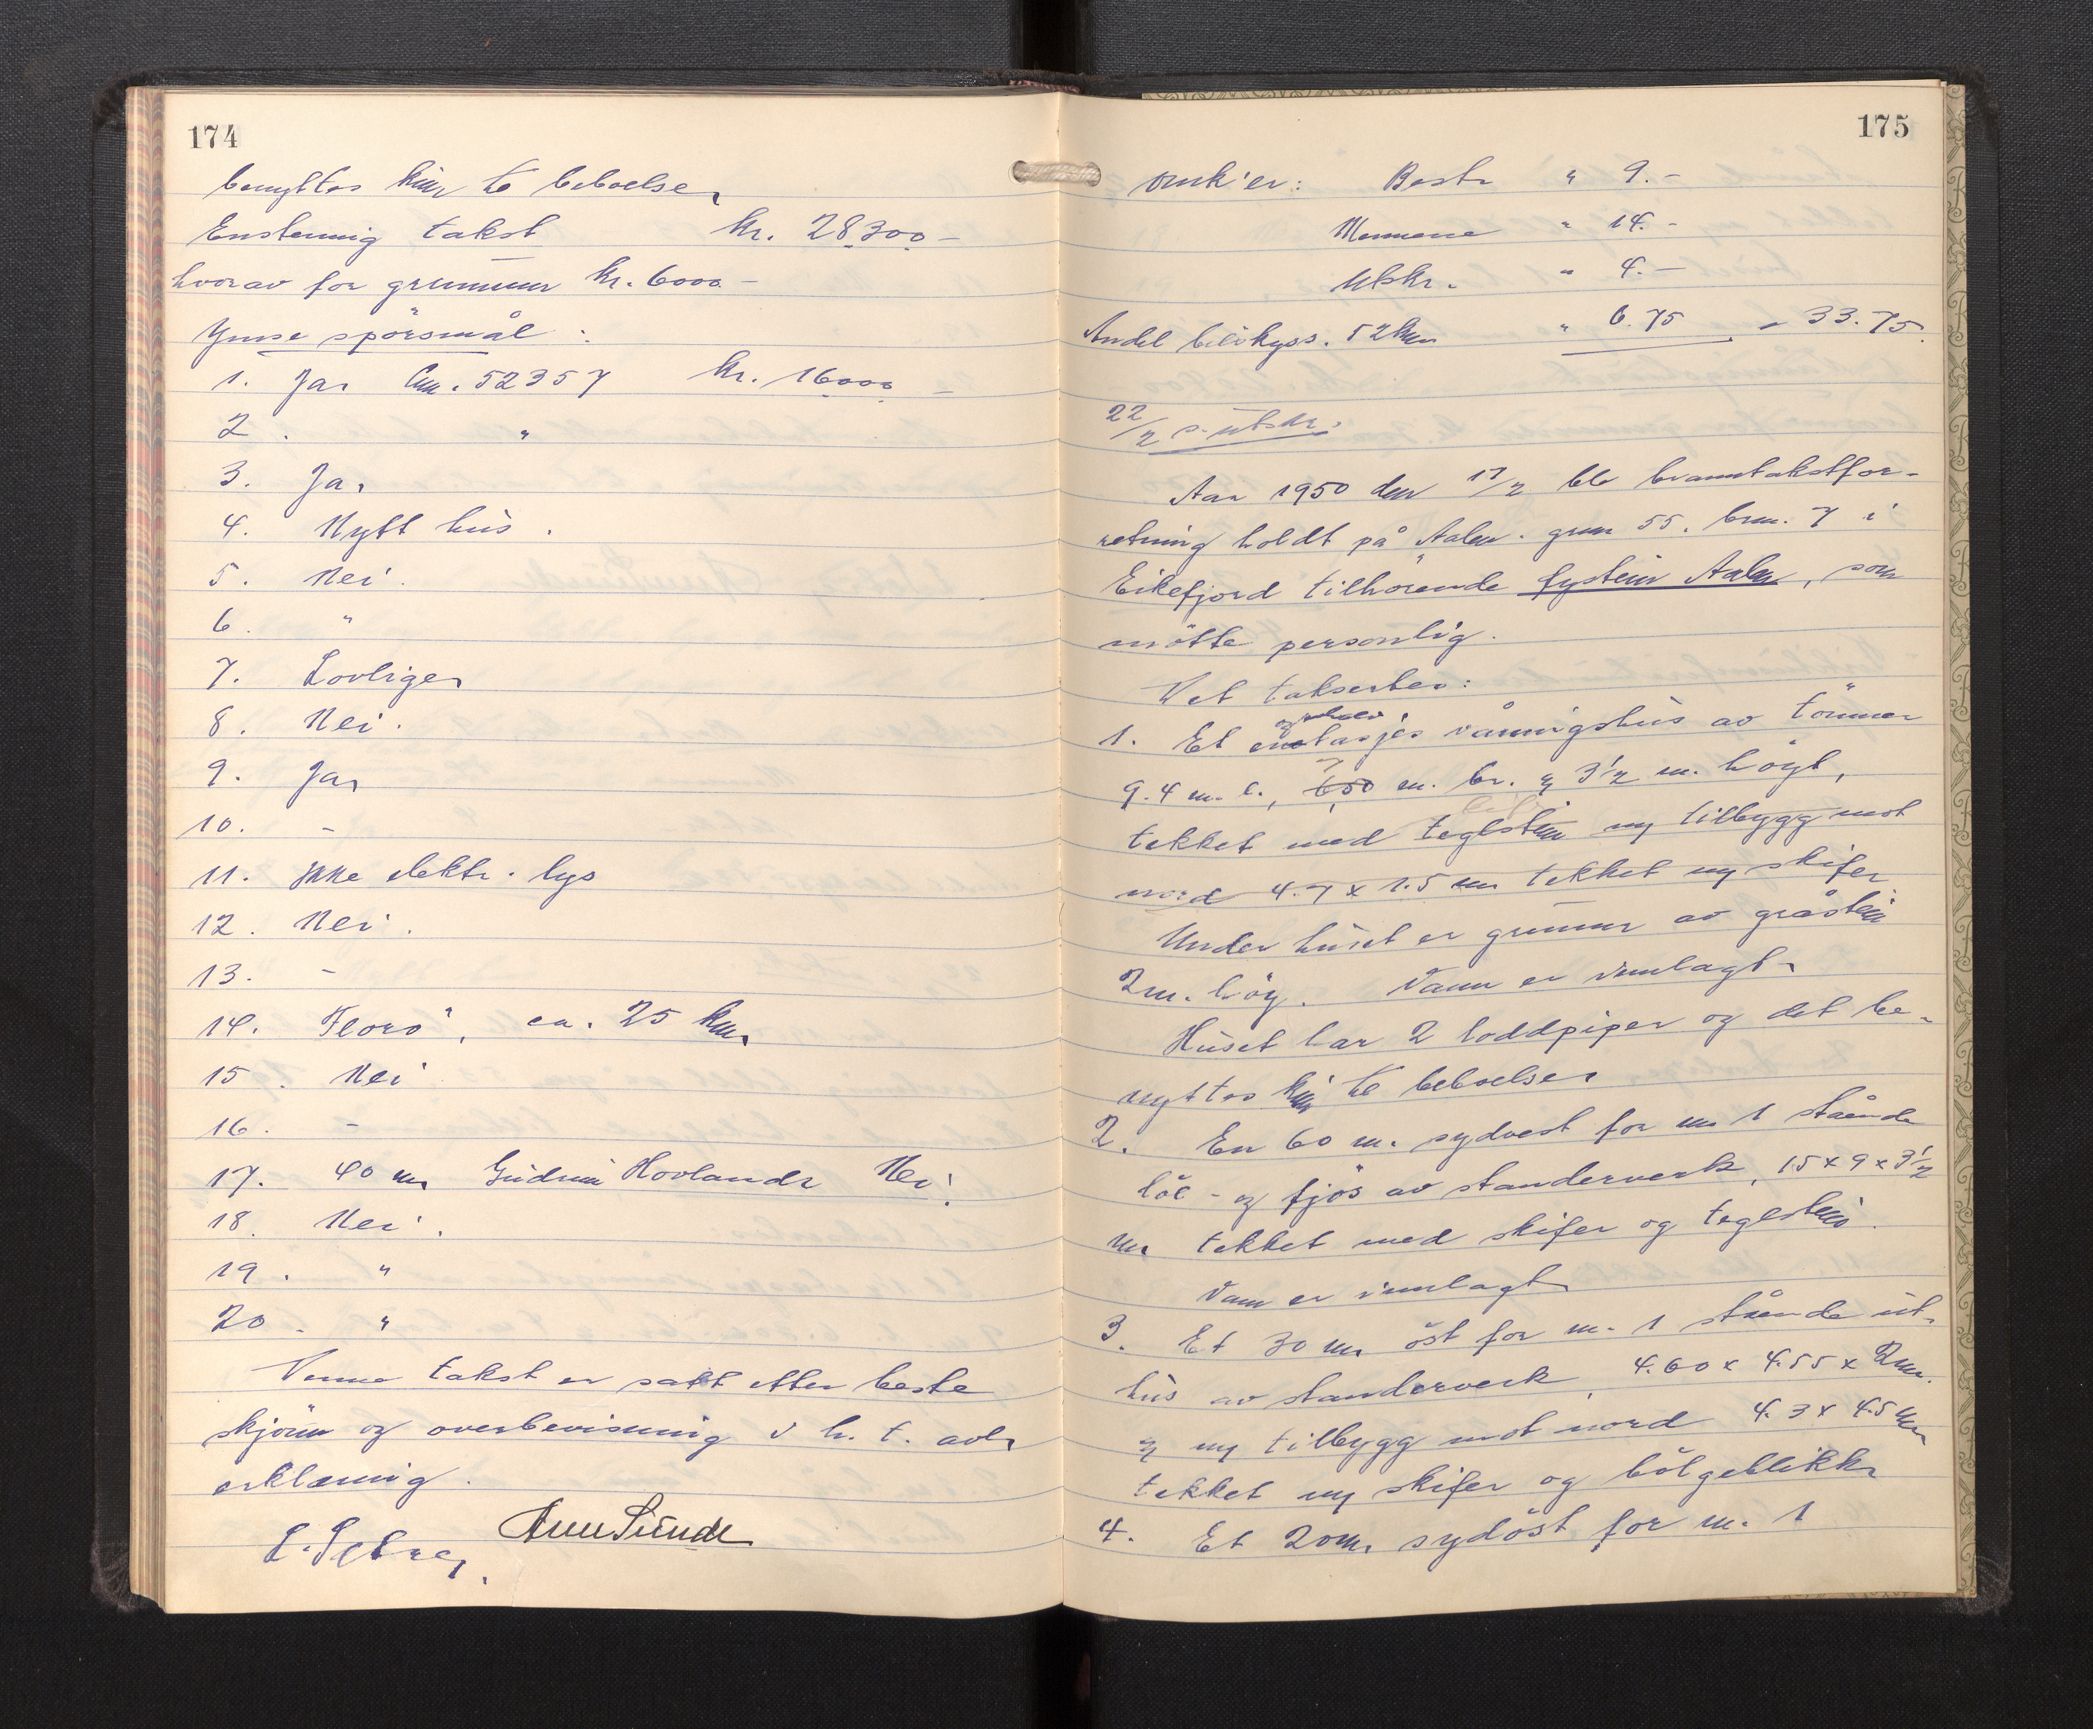 174
benyttes kun til beboelse.
Enstemmig takst kr. 28300.-
hvorav for grunnmur kr. 6000.-
Ymse spörsmål:
1. Ja. Lnr. 52357 kr. 16000.-
2. "
3. Ja.
4. Nytt hus.
5. Nei.
6. "
7. Lovlige.
8. Nei.
9. Ja.
10. -
11. Ikke elektr. lys
12. Nei.
13. -
14. Florö, ca. 25 km.
15. Nei
16. -
17. 40 m. Hovland. Nei.
18. Nei.
19. "
20. "
Denne takst er satt etter beste
skjönn og overbevisning i h. t. avl.
erklæring.
175
Omk'er: Best. " 9.-
Mennene " 14.-
Utskr. " 4.-
Andel bilskyss. 52 km " 6.75 " 33.75.
22/2 s. utskr.
Aar 1950 den 17/2 ble branntakstfor-
retning holdt på Aalen gnr. 55. brnr. 7 i
Eikefjord tilhörende Eystein Aalen, som
mötte personlig.
Det taksertes:
1. Et en og halv etasjes våningshus av tömmer
9.4 m. l., 7 m. br. og 3 1/2 m. höyt,
tekket med teglstein m/ tilbygg mot
nord 4.7 x 1.5 m. tekket m/ skifer
Under huset er grunnmur av gråstein
2 m. höy. Vann er innlagt.
Huset har 2 loddpiper og det be-
nyttes kun til beboelse.
2. En 60 m. sydvest for nr. 1 stående
löe- og fjös av standerverk, 15 x 9 x 3 1/2
m. tekket med skifer og teglstein.
Vann er innlagt.
3. Et 30 m. öst for nr. 1 stående ut-
hus av standerverk, 4.60 x 4.55 x 2 m.
og m/ tilbygg mot nord 4.3 x 4.5 m.
tekket m/ skifer og bölgeblikk.
4. Et 20 m. sydöst for nr. 1